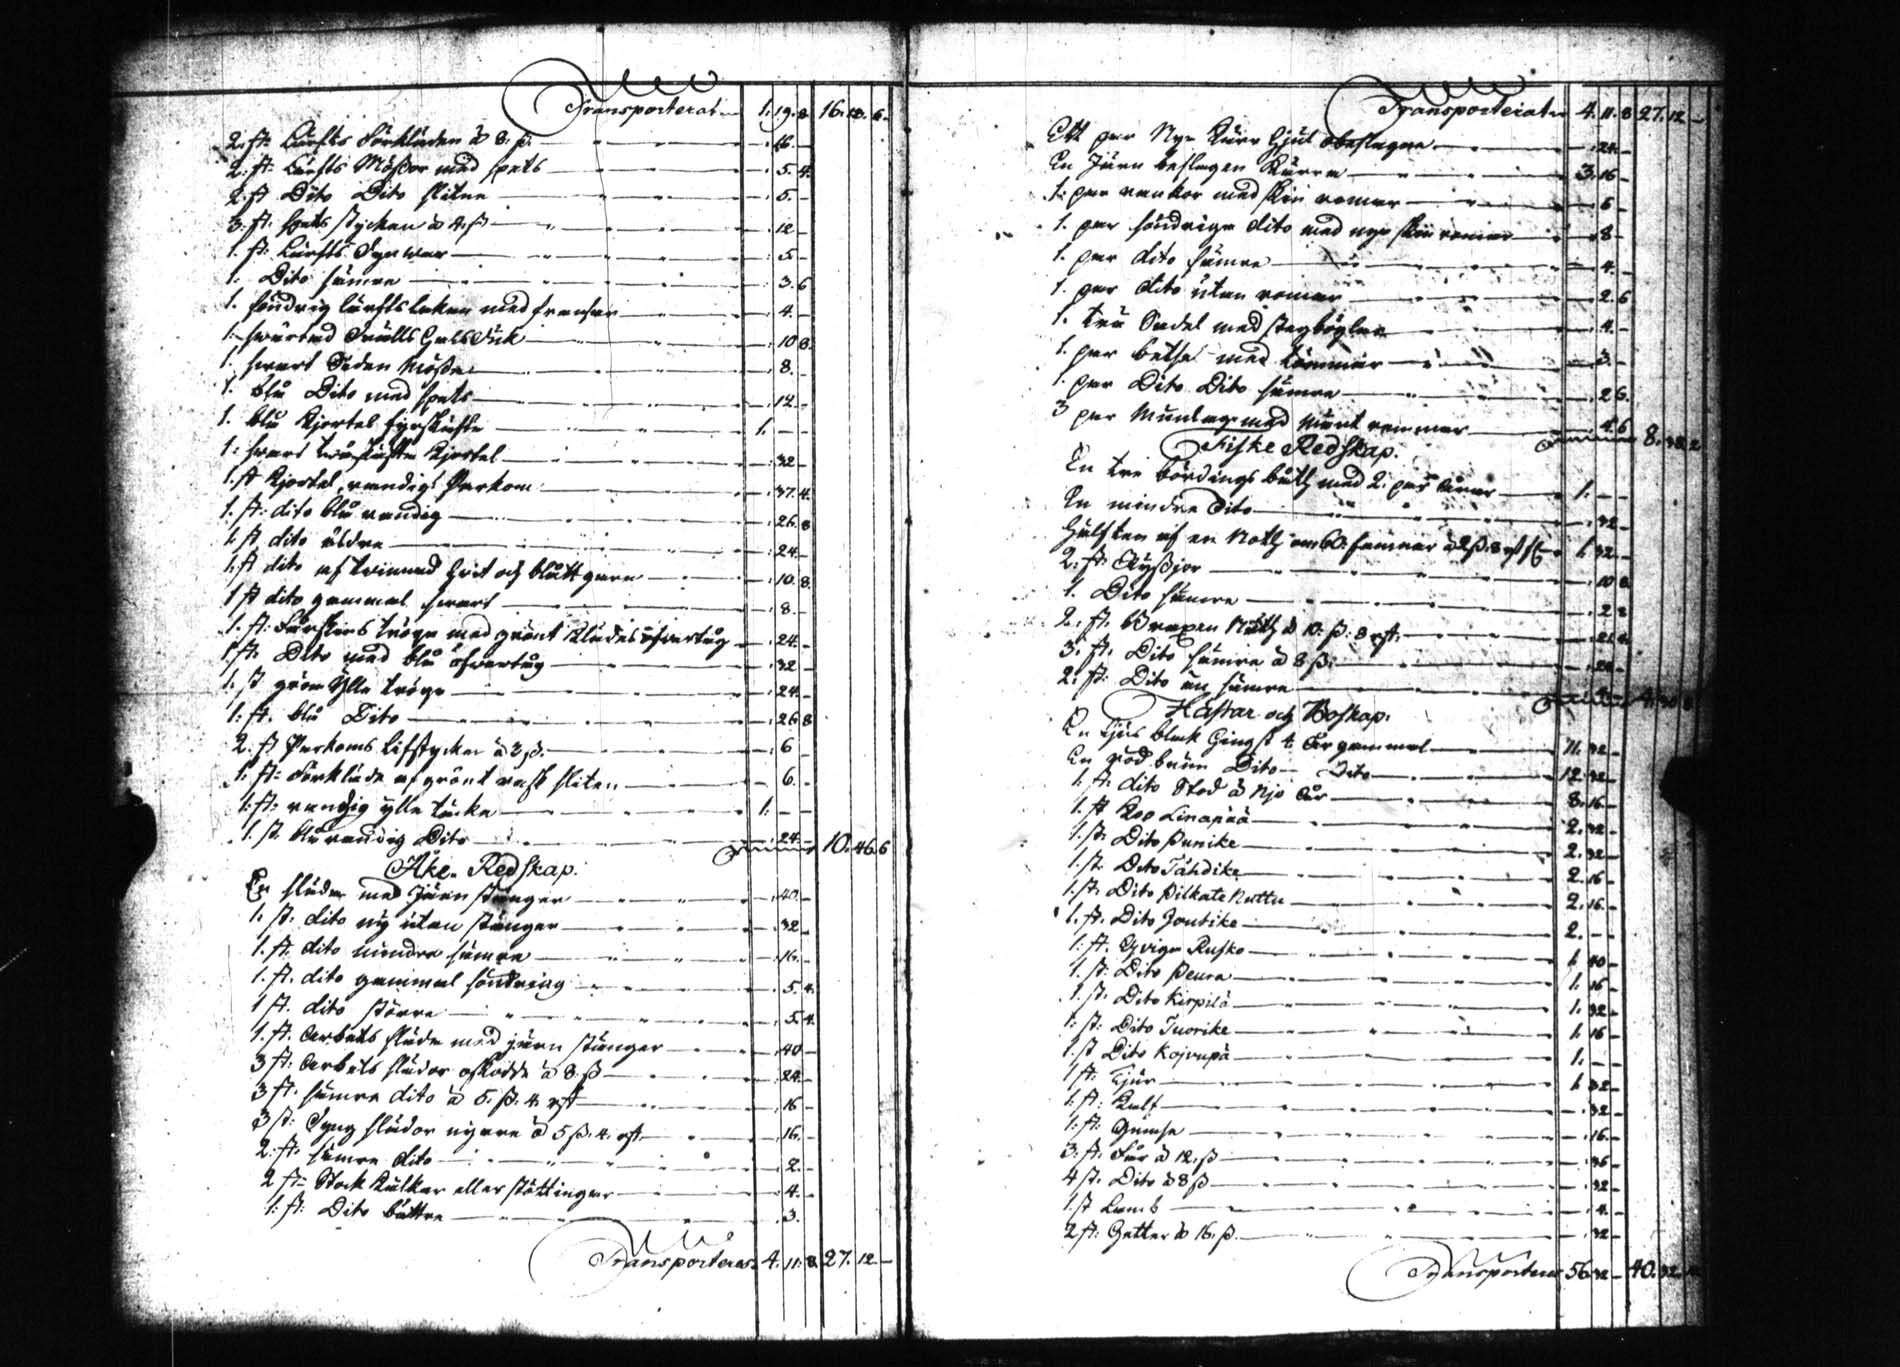 Transporterat 1. 19. 8 16. 6.
2. st. Lärfts Förkläden à 8. ß. 16. -
2. st. Lärfts Mößor med spets 5. 4.
2. st Dito Dito slitne 5. -
3. st. spets stycken à 4. ß 12 -
1. st. Lärfts 5 -
1. Dito sämre 3. 6
1. söndrig lärfts lakan med fransar 4. -
1. Hals Duk 10 8.
1. swart Siden Mößa 8. -
1. blå Dito med spets 12 -
1. blå Kjortel 1. - -
1. swart Kjortel 32 -
1. st Kjortel, randigt Parkom 37. 4.
1. st. dito blå randig 26. 8
1. st dito äldre 24. -
1. st dito af twinnad hwit och blått garn 10. 8.
1 st dito gammal swart 8. -
1. st. Fårskins tröya med grönt Klädes öfwertyg 24. -
1. st. Dito med blå öfwertyg 32 -
1. st grön ylle tröya 24. -
1. st. blå Dito 26 8
2. st Parkoms Lifstycken à 3 ß. 6 -
1. st. Förkläde af grönt rask sliten 6. -
1. st. randig ylle täcke 1. - -
1. st. blårandig Dito 24. - 10. 46. 6
Åke Redskap.
En släde med Järn stänger 40. -
1. st. dito ny utan stänger 32 -
1. st. dito mindre sämre 16. -
1. st. dito gammal söndring 5. 4.
1 st. dito större 5. 4.
1. st. Arbets släde med järn stänger 40 -
3 st. Arbets slädor oskodde à 8. ß 24. -
3 st. sämre dito à 5. ß. 4. rst 16 -
3 st. slädor nyare à 5 ß. 4. rst 16. -
2. st. sämre dito 2. -
2 st. Stock Kälkar eller stöttingar 4. -
1. st. Dito bättre 3. -
Transporteras 4. 11. 8. 27. 12 -
Transporterat 4. 11. 8 27. 12 -
Ett par Nya Kärr hjul obeslagne 24. -
En Järn beslagen Kärra 3. 16 -
1. par rankor med skin remar 6 -
1. par söndriga dito med nya skin remar 8 -
1. par dito sämre 4. -
1. par dito utan remar 2. 6
1. trä Sadel med stegböglar 4. -
1. par betsel med tömmar 3. -
1. par Dito Dito sämre 2 6.
3 par med remmar 4. 6 8.
Fiske Redskap.
En tre bördings båth med 2. par årar 1. - -
En mindre dito 32 -
Hälften af en Noth om 60. famnar 1. 32 -
2. st. Ryßjor 10 8
1. Dito sämre 2
2. st. Näth à 10. ß. 8 rst.
3. st. Dito sämre à 8 ß. 24 -
2. st. Dito än sämre 4. -
Hästar och Boskap.
En ljus black Hingst 4. År gammal 11. 32 -
En röd brun Dito - Dito 12. 32 -
1. st. dito Stod à Nijo År 8. 16 -
1. st Koo Linapää 2. 32 -
1. st. Dito Punike 2. 32 -
1. st. Dito Tähdike 2. 16 -
1. st. Dito Pilkate Nuttu 2. 16. -
1. st. Dito Joutike 2. - -
1. st. Qwiga Rusko 1. 40 -
1. st. Dito Peura 1. 16 -
1. st. Dito Kirpilä 1. 32 -
1. st. Dito Tuorike 1. 16 -
1. st Dito Kojrupä 1. - -
1 st. Tjur 1. 32 -
1. st. Kalf 32 -
1. st. Gumse 16. -
3. st. Får à 12. ß 36 -
4 st. Dito à 8 ß 32 -
1 st Lamb 4. -
2 st. Getter à 16. ß 32 -
Transporteras 56. 32 - 40. 32